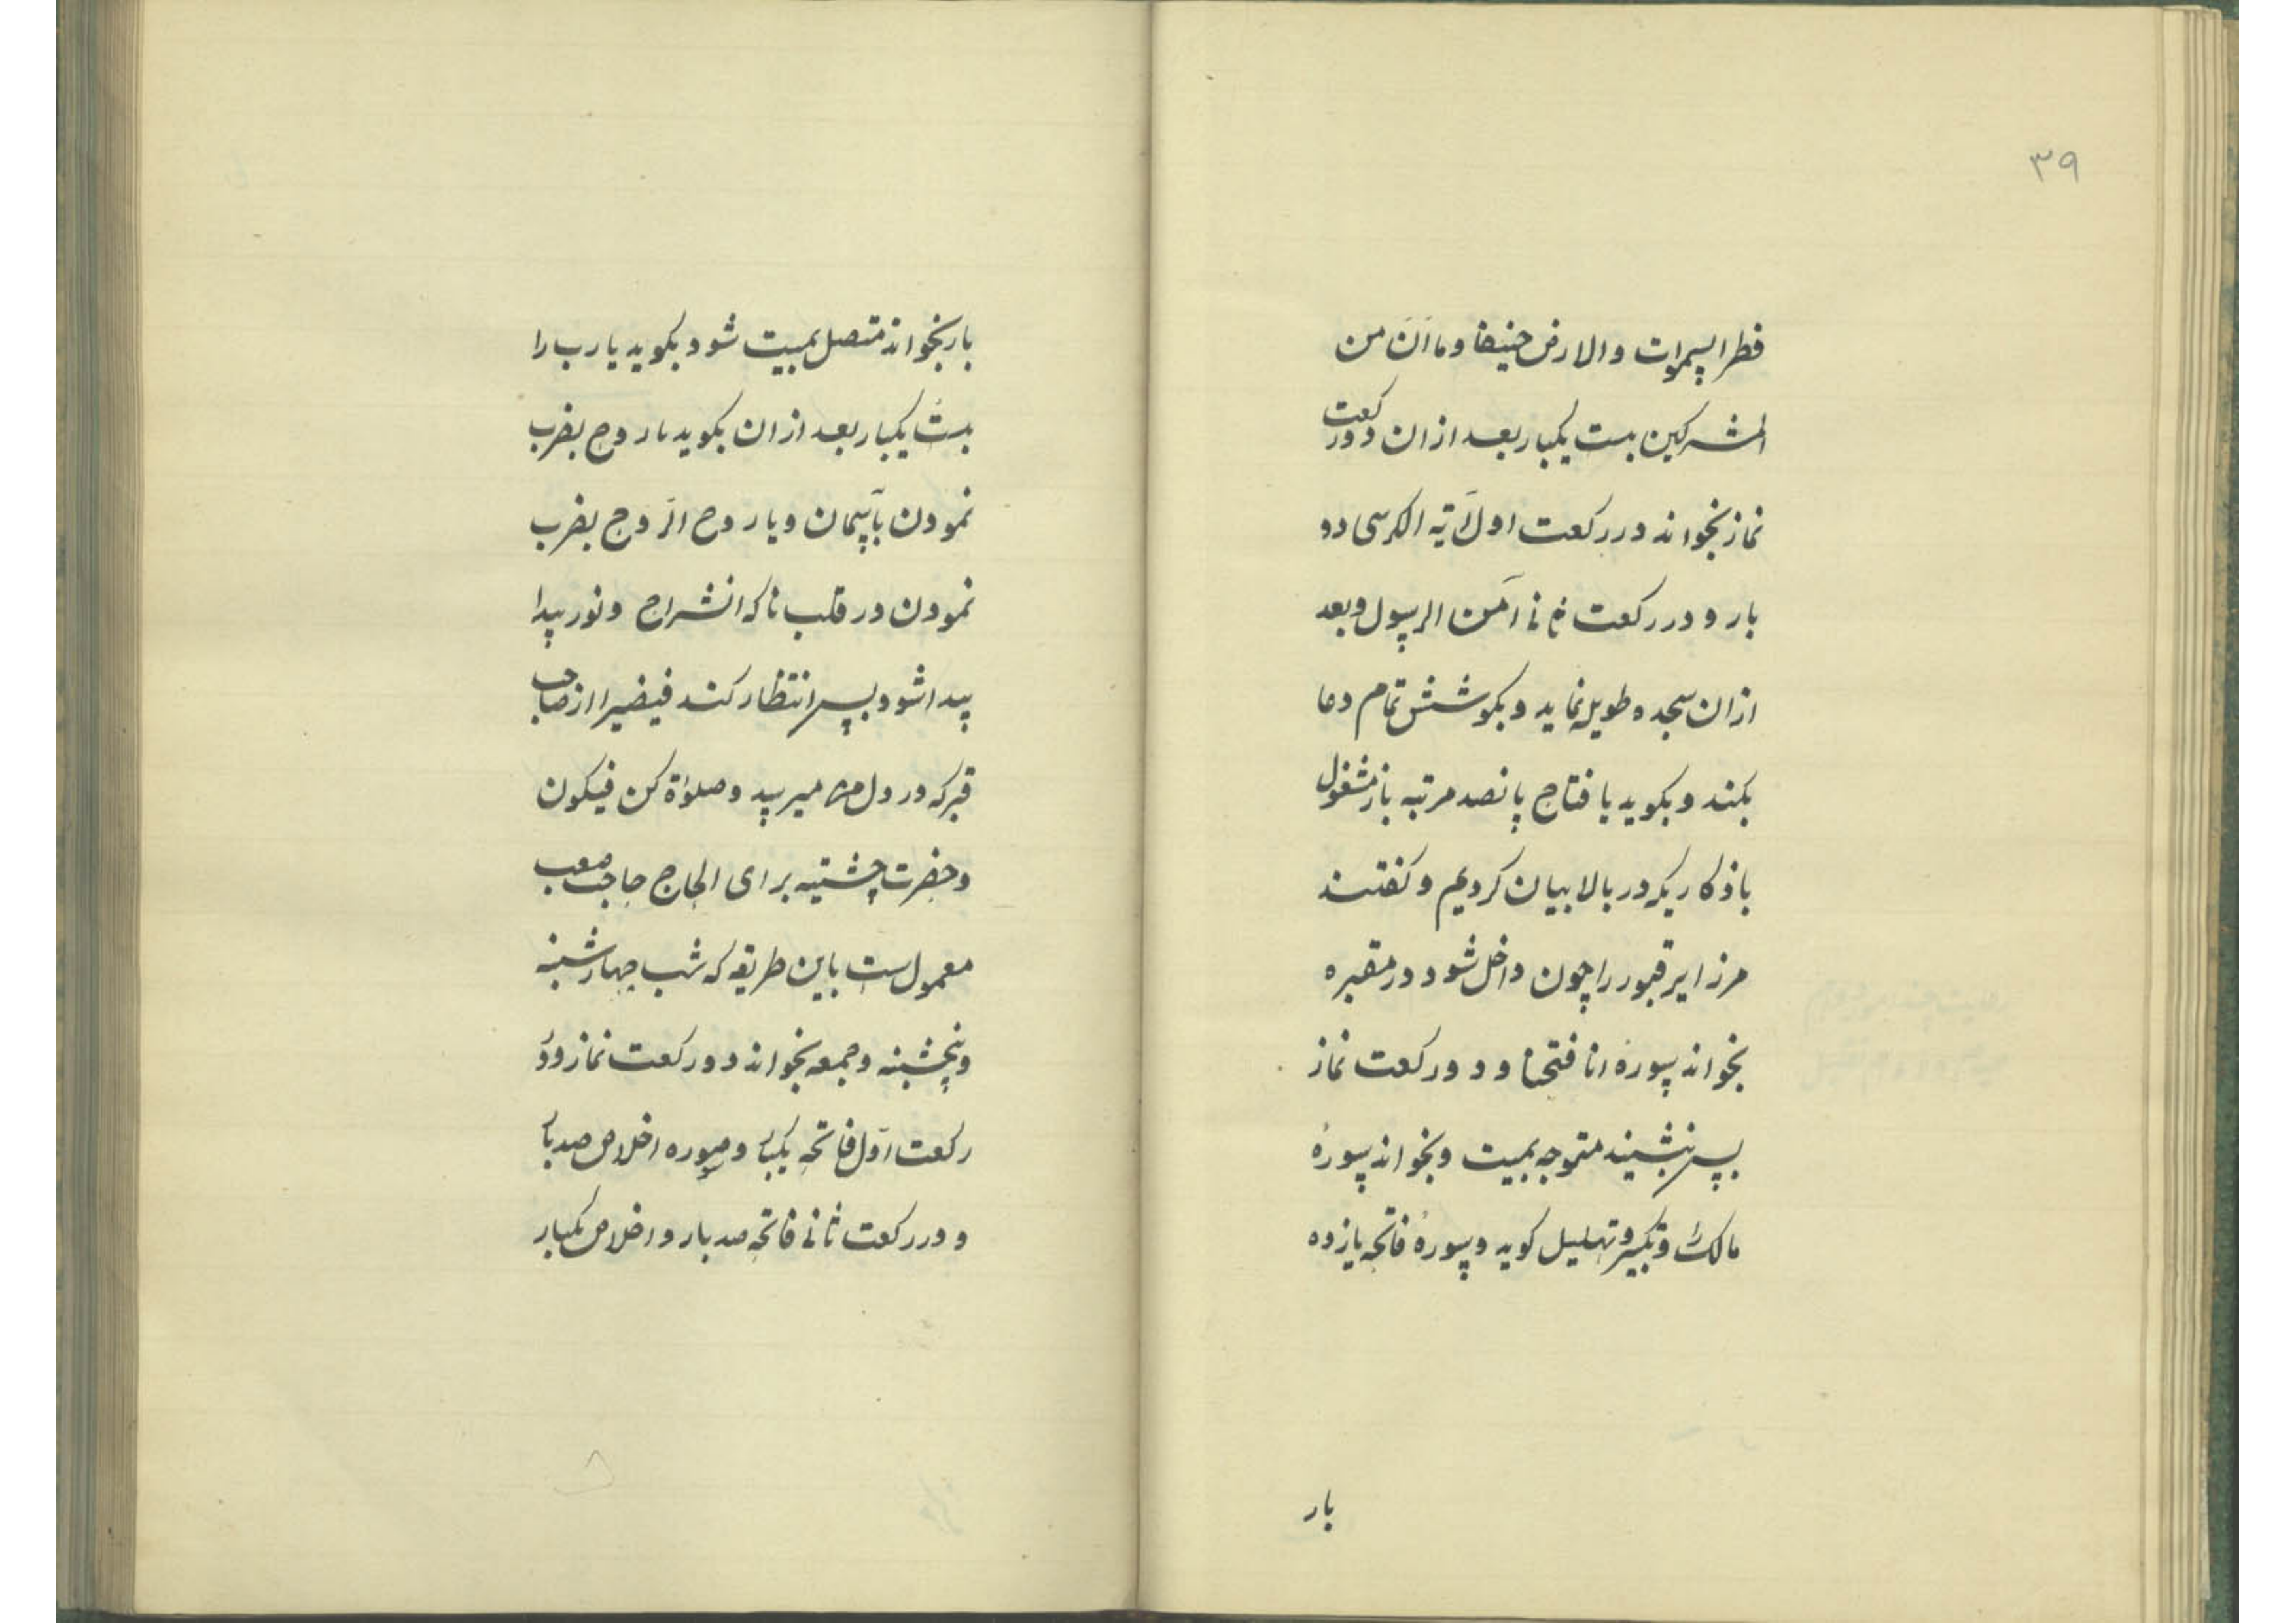 ۳۹
فطر السموات والارض حنیفا وما انا من
المشرکین بست یکبار بعد ازان دو رکعت
نماز بخواند در رکعت اول آیه الکرسی دو
بار و در رکعت ثانی آمن الرسول و بعد
ازان سجده طویله نماید و بکوشش تمام دعا
بکند و بکوید یا فتاح پانصد مرتبه باز مشغول
باذکاریکه در بالا بیان کردیم و کفتند
مر زایر قبور را چون داخل شود در مقبره
بخواند سورهٔ انا فتحنا و دو رکعت نماز
پس بنشیند متوجه بمیت و بخواند سورهٔ
مالک و تکبیر و تهلیل کوید و سورهٔ فاتحه یازده
بار
بار بخواند متصل بمیت شود بکوید یا رب را
بست یکبار بعد ازان بکوید یا روح بضرب
نمودن بآسمان و یا روح الروح بضرب
نمودن در قلب تا که انشراح و نور پیدا
پیدا شود پس انتظار کند فیض را از صاحب
قبر که در دل می رسد و صلوٰة کن فیکون
و حضرت چشتیه برای الحاح حاجت صعب
معمول ست باین طریقه که شب چهارشنبه
و پنجشنبه و جمعه بخواند دو رکعت نماز و در
رکعت اول فاتحه یکبار و سوره اخلاص صد بار
و در رکعت ثانی فاتحه صد بار و اخلاص یکبار